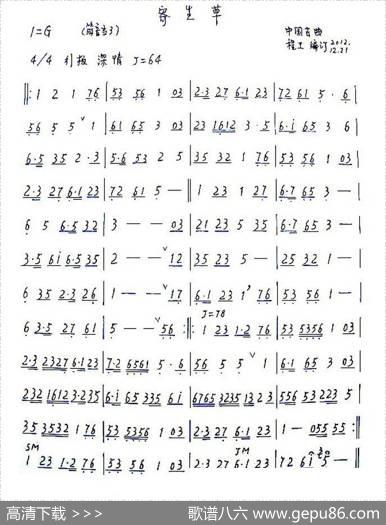 寄生草
1=G (简谱3) 中国古曲
4/4 引板 深情 J=64 程工 编订 2012.12.21
‖: 1 2 1 76 | 53 56 1 03 | 2·3 27 6·1 23 | 72 61 5 · 6 |
56 5 5 ˅ 1 | 61 65 3 03 | 23 1612 3 · 5 | 6·i 65 3 6 |
6·5 35 2 · 3 | 5·6 53 2 5 | 35 32 1 76 | 53 56 1 03 |
2·3 27 6·1 23 | 72 61 5 — ‖ 1 23 1 27 | 6·7 65 3 — |
6 5 6·5 32 | 3 — — 03 | 21 23 5 35 | 6·7 65 3 — |
3·5 6i 6·5 35 | 2 — — ˅ 12 | 35 23 5 — | 25 32 1 — |
6 35 2·3 26 | 1 — — ˅ 17 | 6·1 23 1 ʼ 76 | 53 56 1 — |
J=78
6 3·5 27 61 | 5 — — ˅ 56 :‖: 1 23 1·2 76 | 53 5356 1 03 |
2·3 2327 6·1 23 | 7·2 6561 5 · 6 | 56 5 5 ˅ 1 | 6·1 65 3 03 |
232 1612 3·235 | 6·i 65 335 6i | 6765 3235 13 23 | 556 53 223 5 |
35 3532 1 76 | 53 5356 1 03 | 2·3 27 6·1 23 | 1 — 055 55 :‖
SM JM
1 23 1·2 76 | 53 56 1 03 | 2·3 27 6·1 23 | 72 61 5 — ‖
高清下载 >>> 歌谱八六 www.gepu86.com